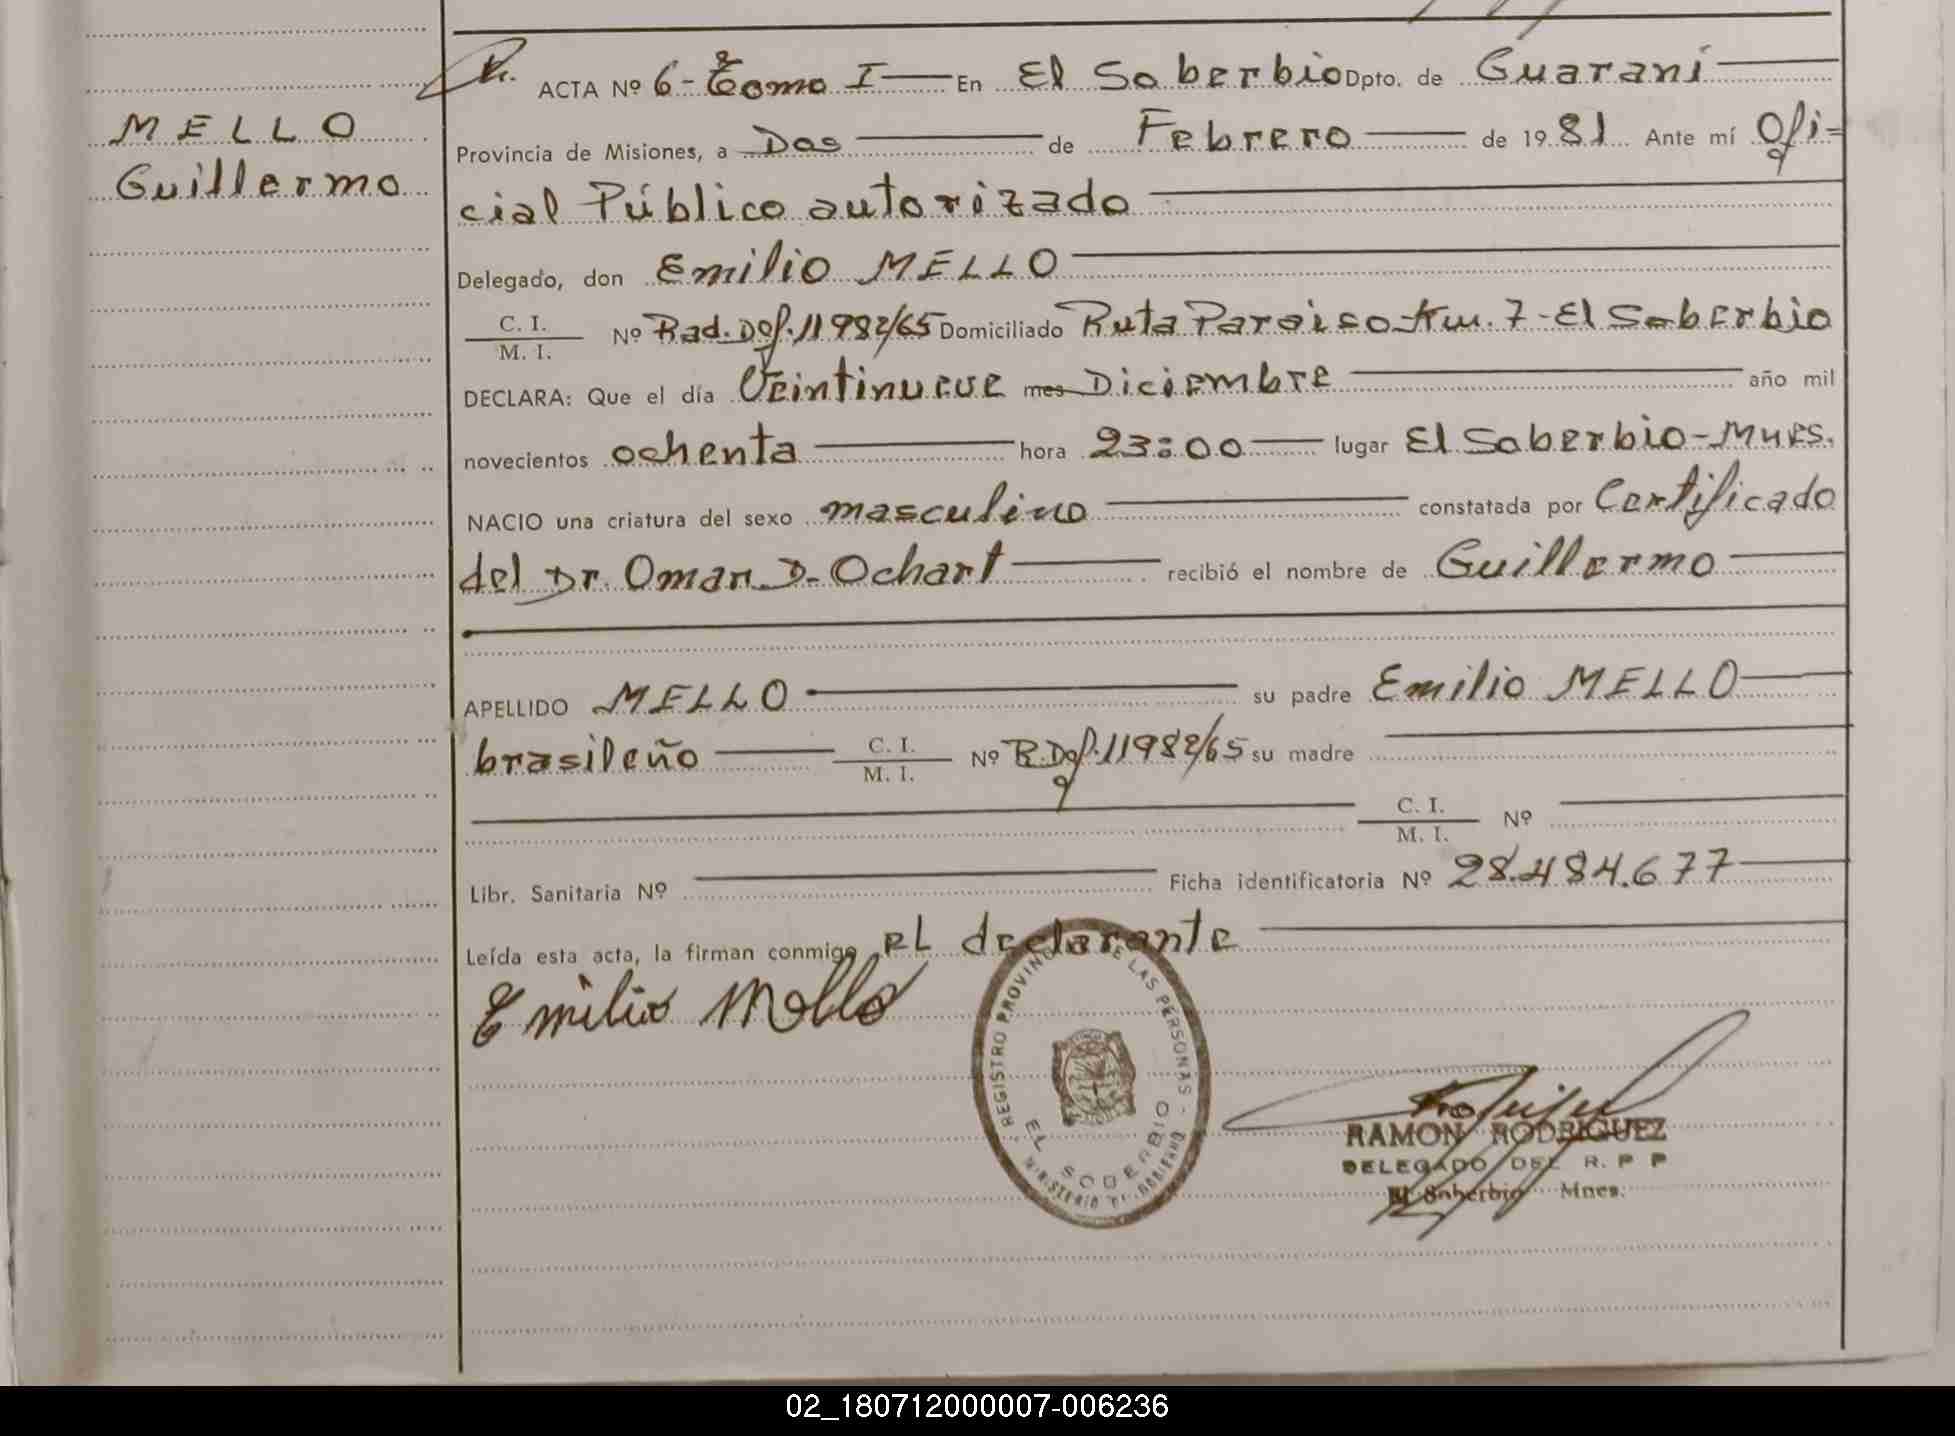 MELLO
Guillermo
ACTA Nº 6- Tomo I En El Soberbio Dpto. de Guaraní
Provincia de Misiones, a Dos de Febrero de 1981 Ante mí Ofi-
cial Público autorizado
Delegado, don Emilio MELLO
C. I.
M. I.
Nº Rad. Def. 11982/65 Domiciliado Ruta Paraiso-Km. 7-El Soberbio
DECLARA: Que el día Veintinueve mes Diciembre año mil
novecientos ochenta hora 23:00 lugar El Soberbio-Mnes.
NACIO una criatura del sexo masculino constatada por Certificado
del Dr. Omar D. Ochart recibió el nombre de Guillermo
APELLIDO MELLO su padre Emilio MELLO
brasileño C. I. M. I. Nº R. Def. 11982/65 su madre
C. I.
M. I.
Nº
Libr. Sanitaria Nº Ficha identificatoria Nº 28.484.677
Leída esta acta, la firman conmigo el declarante
Emilio Mello
REGISTRO PROVINCIAL DE LAS PERSONAS
EL SOBERBIO
RAMON RODRIGUEZ
DELEGADO DEL R. P P
El Soberbio Mnes.
02_180712000007-006236